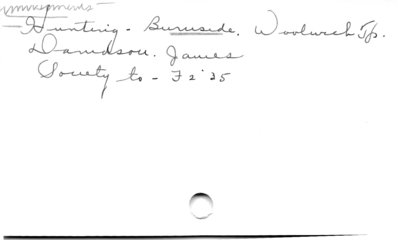 Hunting - Burnside. Woolwich Tp.
Davidson. James
Society to - F 2 '25